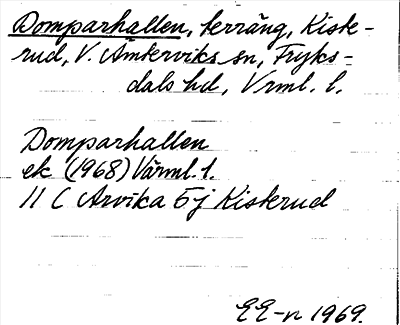 Domparhallen, terräng, Kiste-
rud, V. Ämterviks sn, Fryks-
dals hd, Vrml. l.
Domparhallen
ek (1968) Värml. l.
11 C Arvika 5j Kisterud
EE-n 1969.